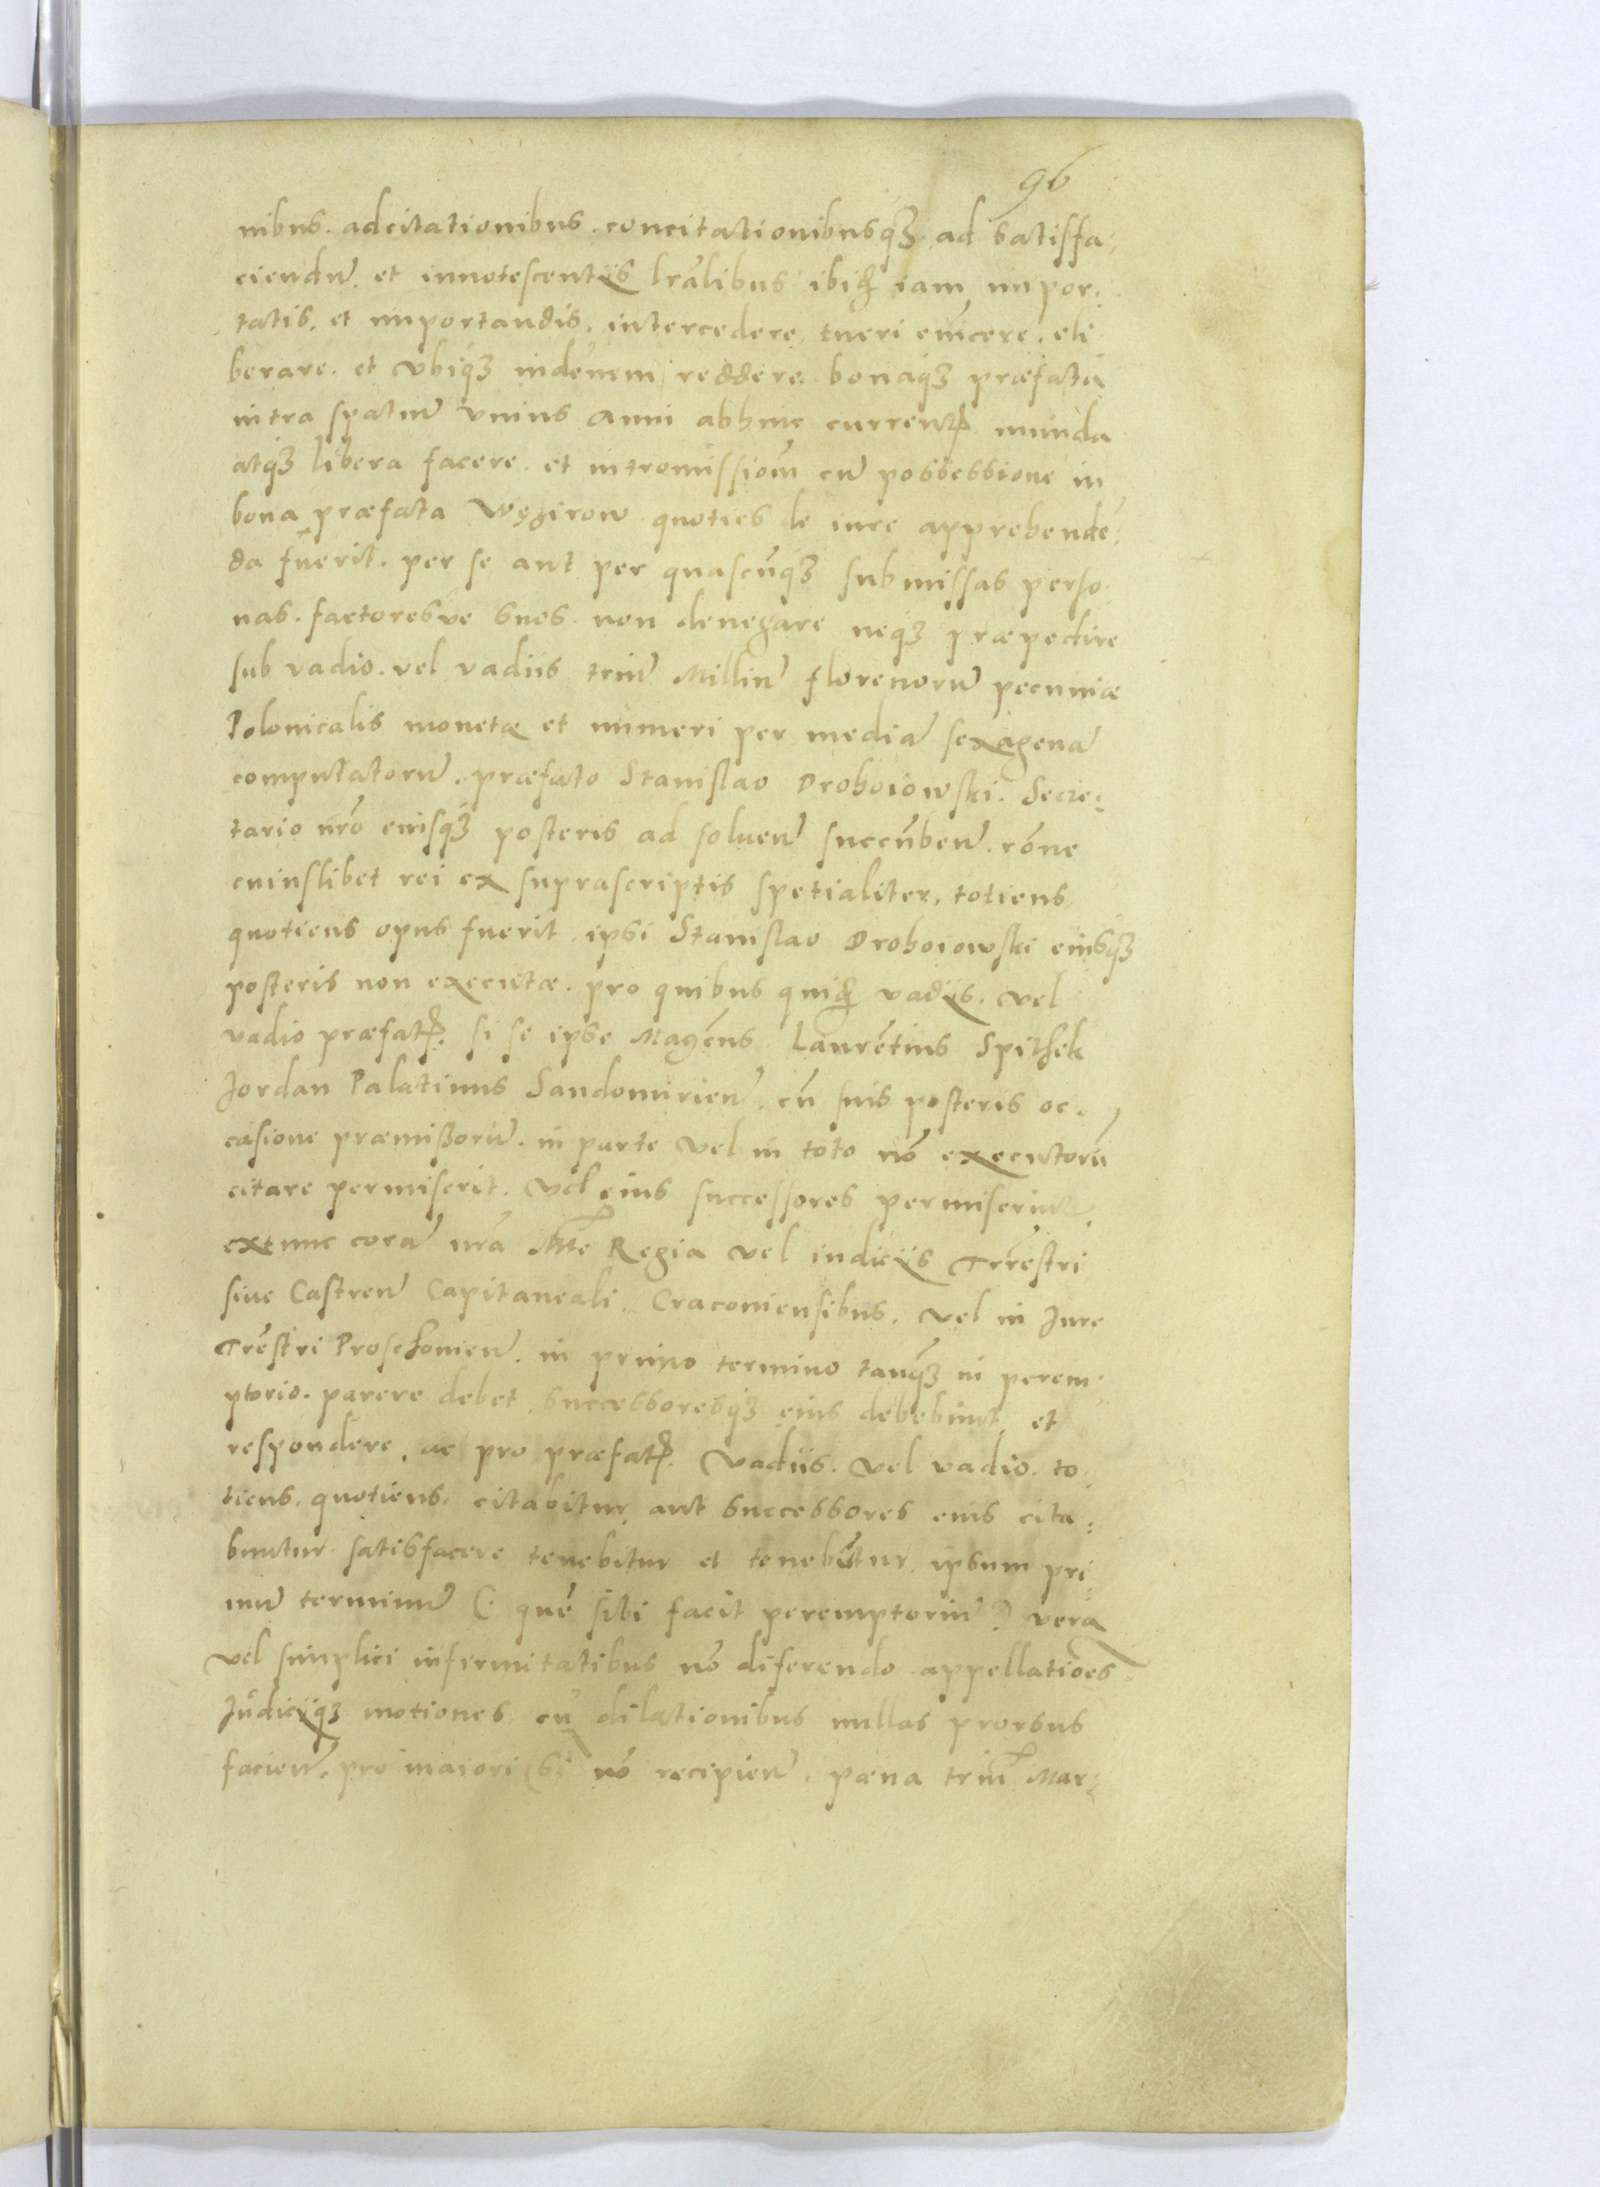 96
nibus. adcitationibus. concitationibusq3 ad satisfa:
ciendũ. et innotescentijs lr̃alibus ibiq̃ iam impor:
tatis. et importandis. intercedere, tueri euincere. eli
berare. et vbiq3 indẽnem reddere. bonaq3 præfata
intra spatiũ vnius anni abhinc currentꝭ munda
atq3 libera facere. et intromissioñ cũ possessione in
bona præfata Węgirow quoties de iure apprehendẽ:
da fuerit. per se aut per quascũq3 submissas perso
nas. factoresve suos. non denegare neq3 præpedire
sub vadio. vel vadiis triũ Milliũ florenorũ pecuniæ
Polonicalis monetæ et numeri per mediã sexagenã
computatorũ. præfato Stanislao Drohoiowski. Secre:
tario nr̃o eiusq3 posteris ad soluenũ succũbenũ. rõne
cuiuslibet rei ex suprascriptis spetialiter, totiens
quotiens opus fuerit. ipsi Stanislao Drohoiowski eiusq3
posteris non executæ. pro quibus quiq̃ vadijs. vel
vadio præfatꝭ. si se ipse Magc̃us Laurẽtius Spithek
Jordan Palatinus Sandomirieñ. cũ suis posteris oc:
casione præmissorũ. in parte vel in toto nõ executorũ
citare permiserit. vel eius successores permiserint
extunc corã nr̃a Mtte Regia vel indicijs Tr̃restri
siue Castreñ Capitaneali. Cracouiensibus. vel in Jure
Tr̃estri Proschouieñ. in primo termino tanq3 in perem:
ptorio. parere debet. successoresq3 eius debebunt et
respondere, ac pro præfatꝭ. vadiis. vel vadio. to
tiens. quotiens. citabitur aut successores eius cita:
buntur satisfacere tenebitur et tenebũtur. ipsum pri:
mũ terminũ (: quẽ sibi facit peremptoriũ :) vera
vel simplici infirmitatibus nõ diferendo appellatioẽs
Judicijq3 motiones cũ dilationibus nullas prorsus
facienũ. pro maiori si nõ recipienũ. pæna triũ Mar: